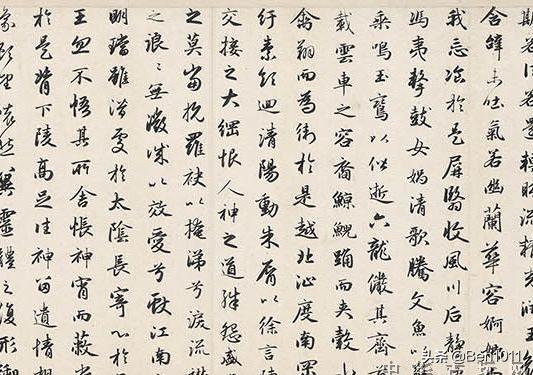 若還轉眄流精光潤玉
含辭未吐氣若幽蘭華容婀娜
我忘飡於是屏翳收風川后靜
馮夷擊鼓女媧清歌騰文魚以
乘鳴玉鸞以偕逝六龍儼其齊
載雲車之容裔鯨鯢踊而夾轂水
禽翔而為衛於是越北沚度南岡
紆素領迴清陽動朱脣以徐言陳
交接之大綱恨人神之道殊怨盛
之莫當抗羅袂以掩涕兮淚流襟
之浪〻無微誠以效愛兮獻江南
明璫雖潛處於太陰長寄心於
王忽不悟其所舍悵神宵而蔽光
於是背下陵高足往神留遺情想
像顧望懷愁冀靈體之復形御
头条 @Ben1011